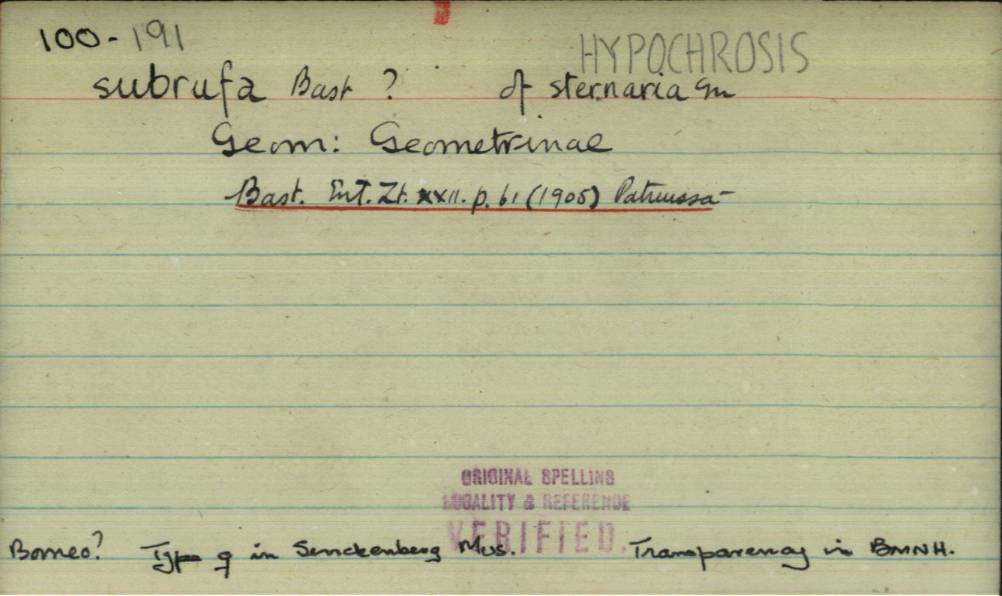 100-191
HYPOCHROSIS
subrufa Bast ? of sternaria Gn
Geom: Geometrinae
Bast. Ent. Zt. xxii. p. 61 (1905) Patruissa
ORIGINAL SPELLING
LOCALITY & REFERENCE
VERIFIED.
Borneo? Type ♀ in Senckenberg Mus. Transparency in BMNH.